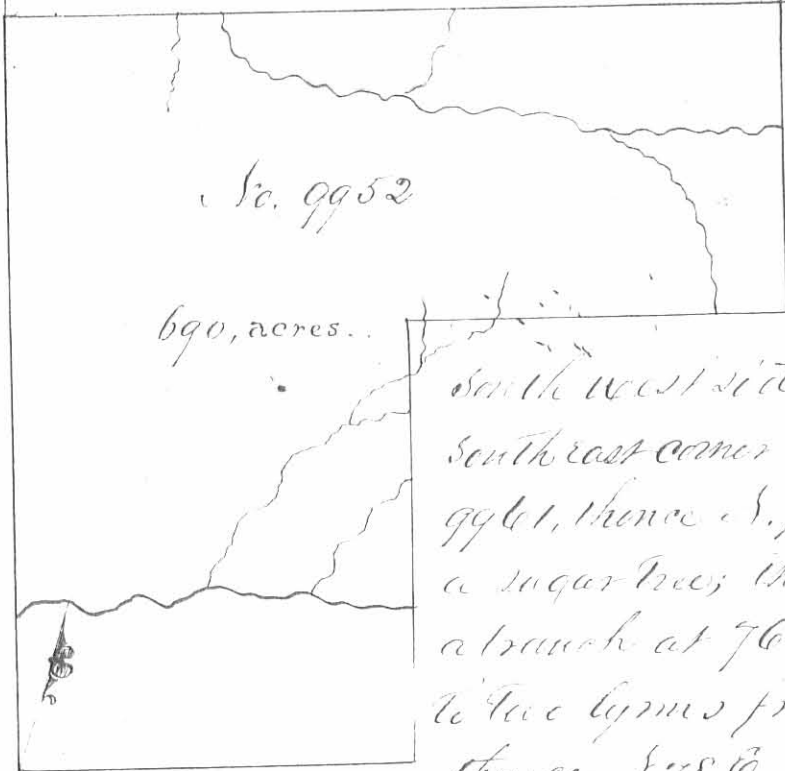 No. 9952
690, acres..
South west sid
South east corner
9961, thence N.
a sugar tree; th
a branch at 76
to two lynns fr
thence